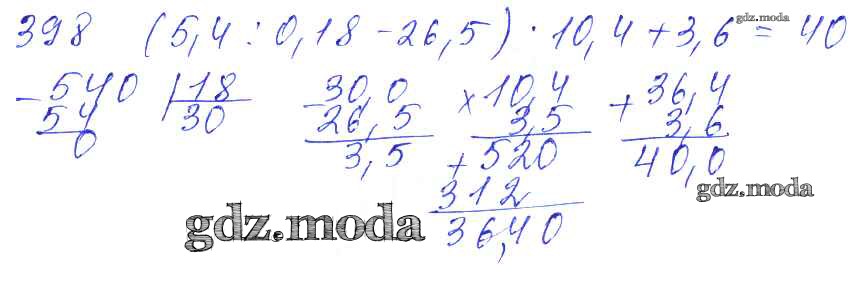 398 (5,4 : 0,18 - 26,5) · 10,4 + 3,6 = 40
gdz.moda
- 540 | 18 - 30,0 × 10,4 + 36,4
54 30 26,5 3,5 3,6
0 3,5 + 520 40,0
312 gdz.moda
gdz.moda 36,40